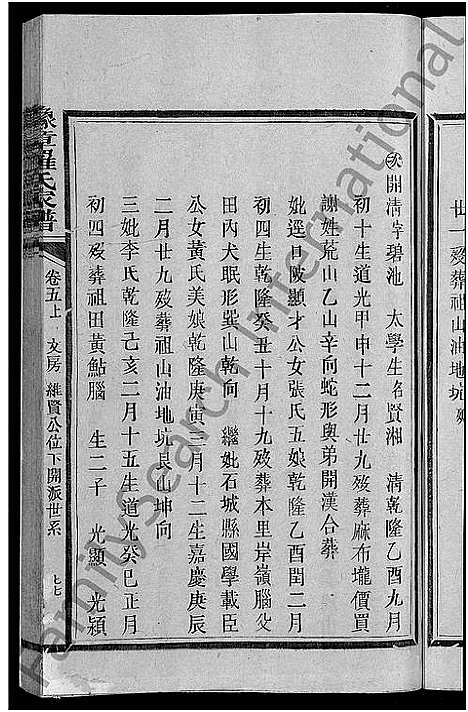 廿一歿葬祖山油地坑
㳄開清字碧池 太學生名賢湘 清乾隆乙酉九月
初十生道光甲申十二月廿九歿葬麻布壠價買
謝姓荒山乙山辛向蛇形與弟開漢合葬
妣逕口陂顯才公女張氏五娘乾隆乙酉閏二月
初四生乾隆癸丑十月十九歿葬本里岸嶺腦父
田內犬眠形巽山乾向 繼妣石城縣國學載臣
公女黃氏美娘乾隆庚寅 月十二生嘉慶庚辰
二月廿九歿葬祖山油地坑艮山坤向
三妣李氏乾隆己亥二月十五生道光癸巳正月
初四歿葬祖田黃鮎腦 生二子 光顯 光頴
豫章羅氏家譜
卷五上 文房 維賢公位下開派世系
七七
FamilySearch International